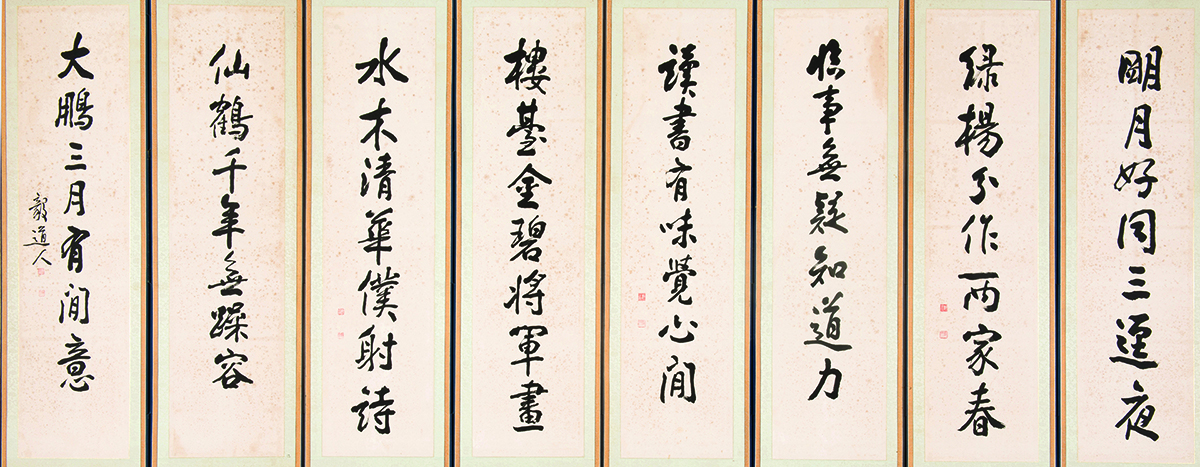 明月好同三逕夜
綠楊分作兩家春
臨事無疑知道力
讀書有味覺心閒
樓臺金碧將軍畫
水木清華僕射詩
仙鶴千年無躁容
大鵬三月有閒意
毅道人